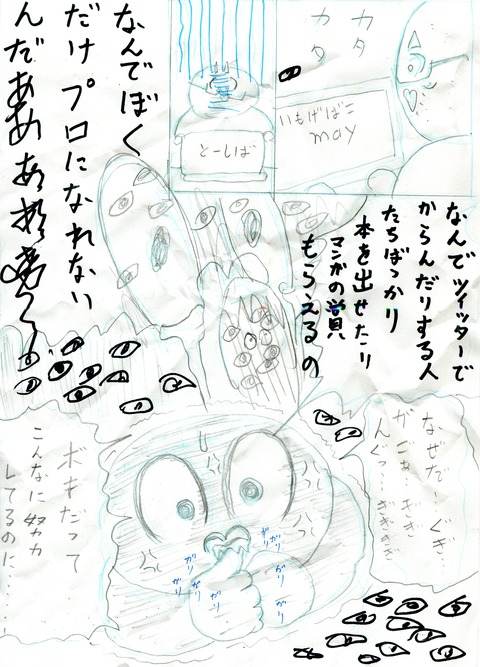 カタ
カタ
いもげばこ
may
とーしば
なんでツイッターで
からんだりする人
たちばっかり
本を出せたり
マンガの賞
もらえるの
なんでぼく
だけプロになれない
んだあああ
なぜだ…ぐぎ…
んぐっ…ぎぎぎぎ
ボキだって
こんなに努力
してるのに……
ガリ
ガリ
ガリ
ガリ
ガリ
ガリ
ガリ